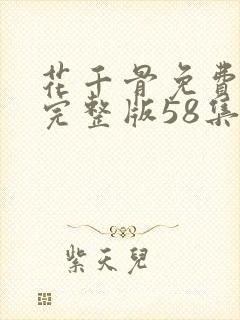 花千骨免費
完整版58集
紫天兒